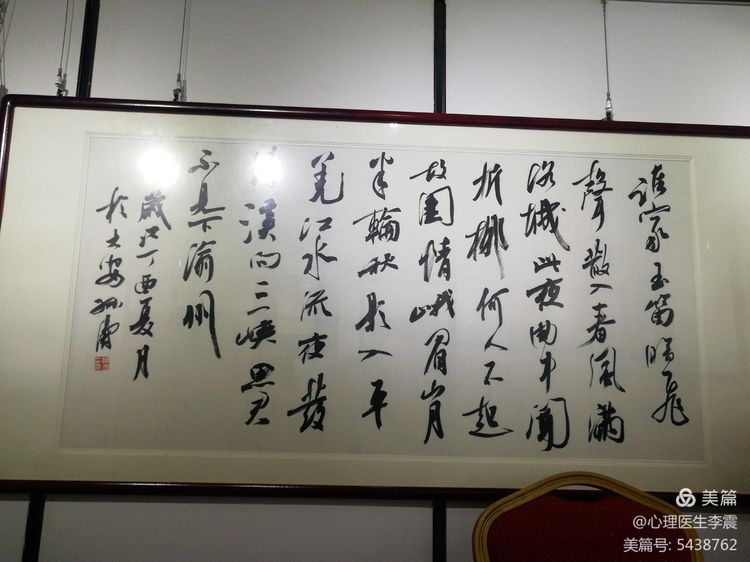 誰家玉笛暗飛
聲散入春風滿
洛城此夜曲中聞
折柳何人不起
故園情峨眉山月
半輪秋影入平
羌江水流夜發
清溪向三峡思君
不見下渝州
歲次丁酉夏月
於大安
美篇
@心理医生李震
美篇号: 5438762